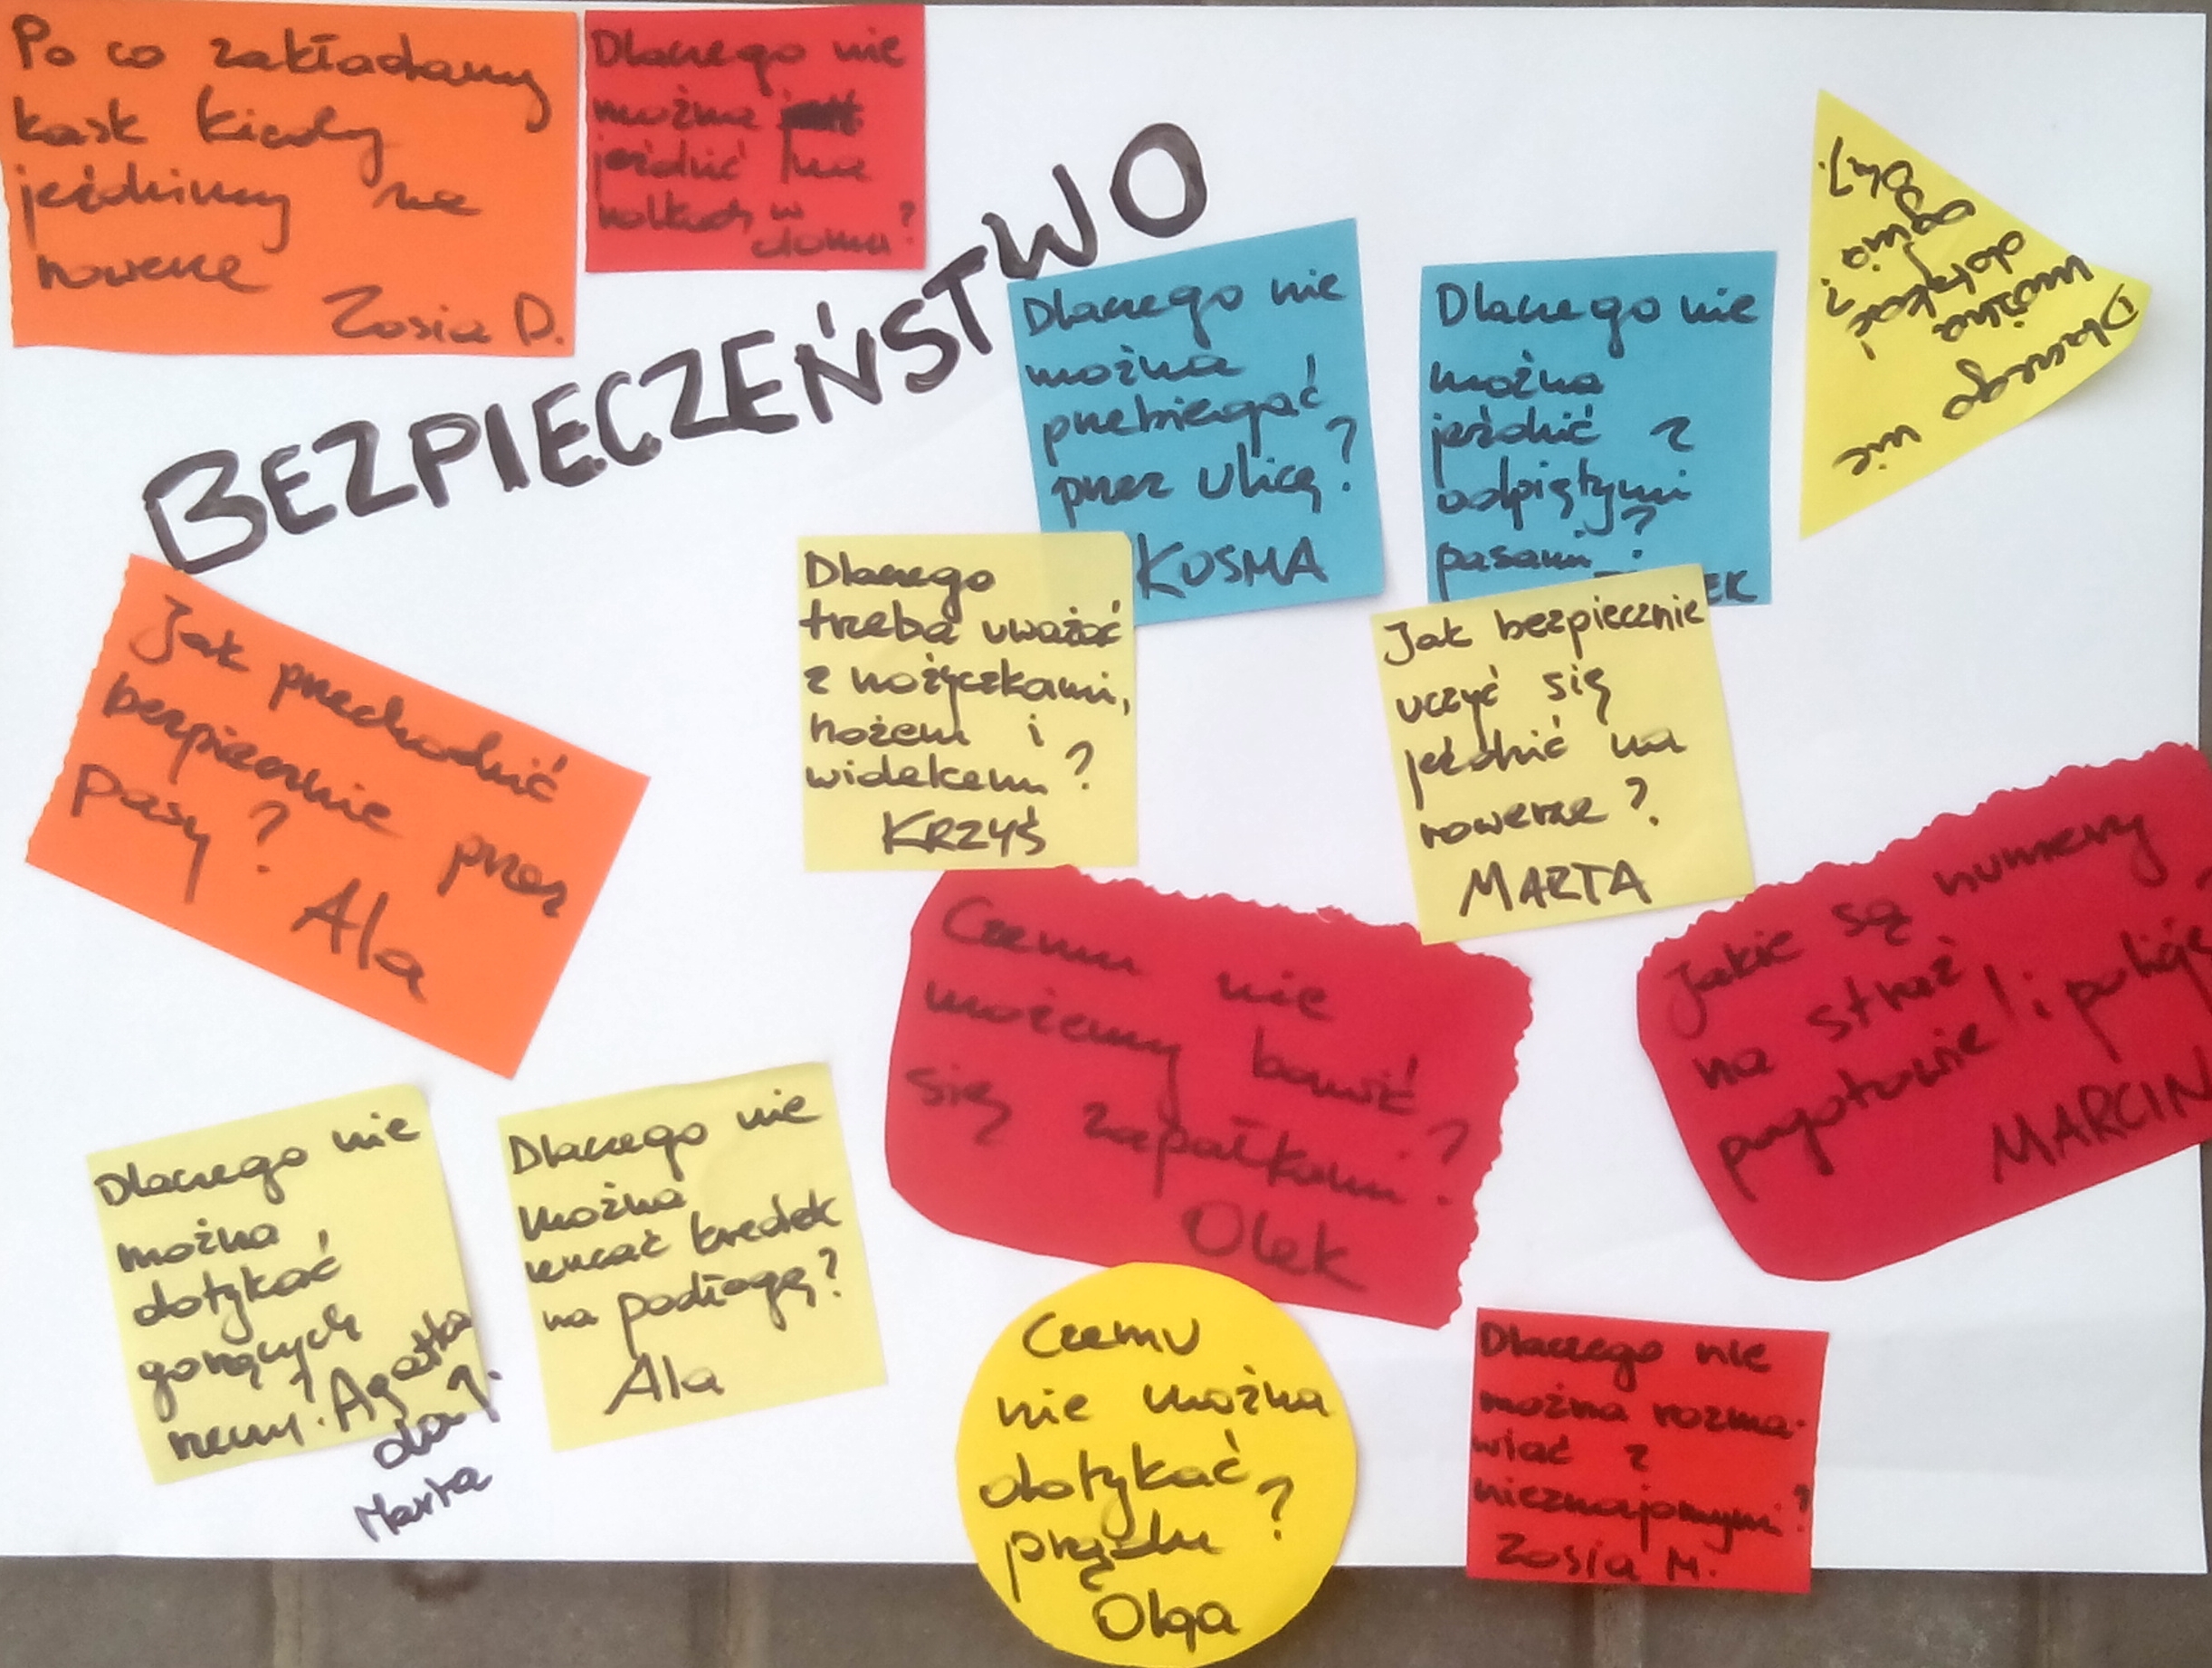 Po co zakładamy
kask kiedy
jeździmy na
rowerze
Zosia D.
Dlaczego nie
można
jeździć na
rolkach w
domu?
BEZPIECZEŃSTWO
Dlaczego nie
można
przebiegać
przez ulicę?
KOSMA
Dlaczego nie
można
jeździć z
odpiętymi
pasami?
EK
Dlaczego nie
można
dotykać
ognia?
Dlaczego
trzeba uważać
z nożyczkami,
nożem i
widelcem?
KRZYŚ
Jak bezpiecznie
uczyć się
jeździć na
rowerze?
MARTA
Jak przechodzić
bezpiecznie przez
pasy?
Ala
Czemu nie
możemy bawić
się zapałkami?
Olek
Jakie są numery
na straż
pogotowie i policję
MARCIN
Dlaczego nie
można
dotykać
gorących
rzeczy? Agatka
da J.
Marta
Dlaczego nie
można
rzucać kredek
na podłogę?
Ala
Czemu
nie można
dotykać
prądu?
Olga
Dlaczego nie
można rozma-
wiać z
nieznajomymi?
Zosia M.